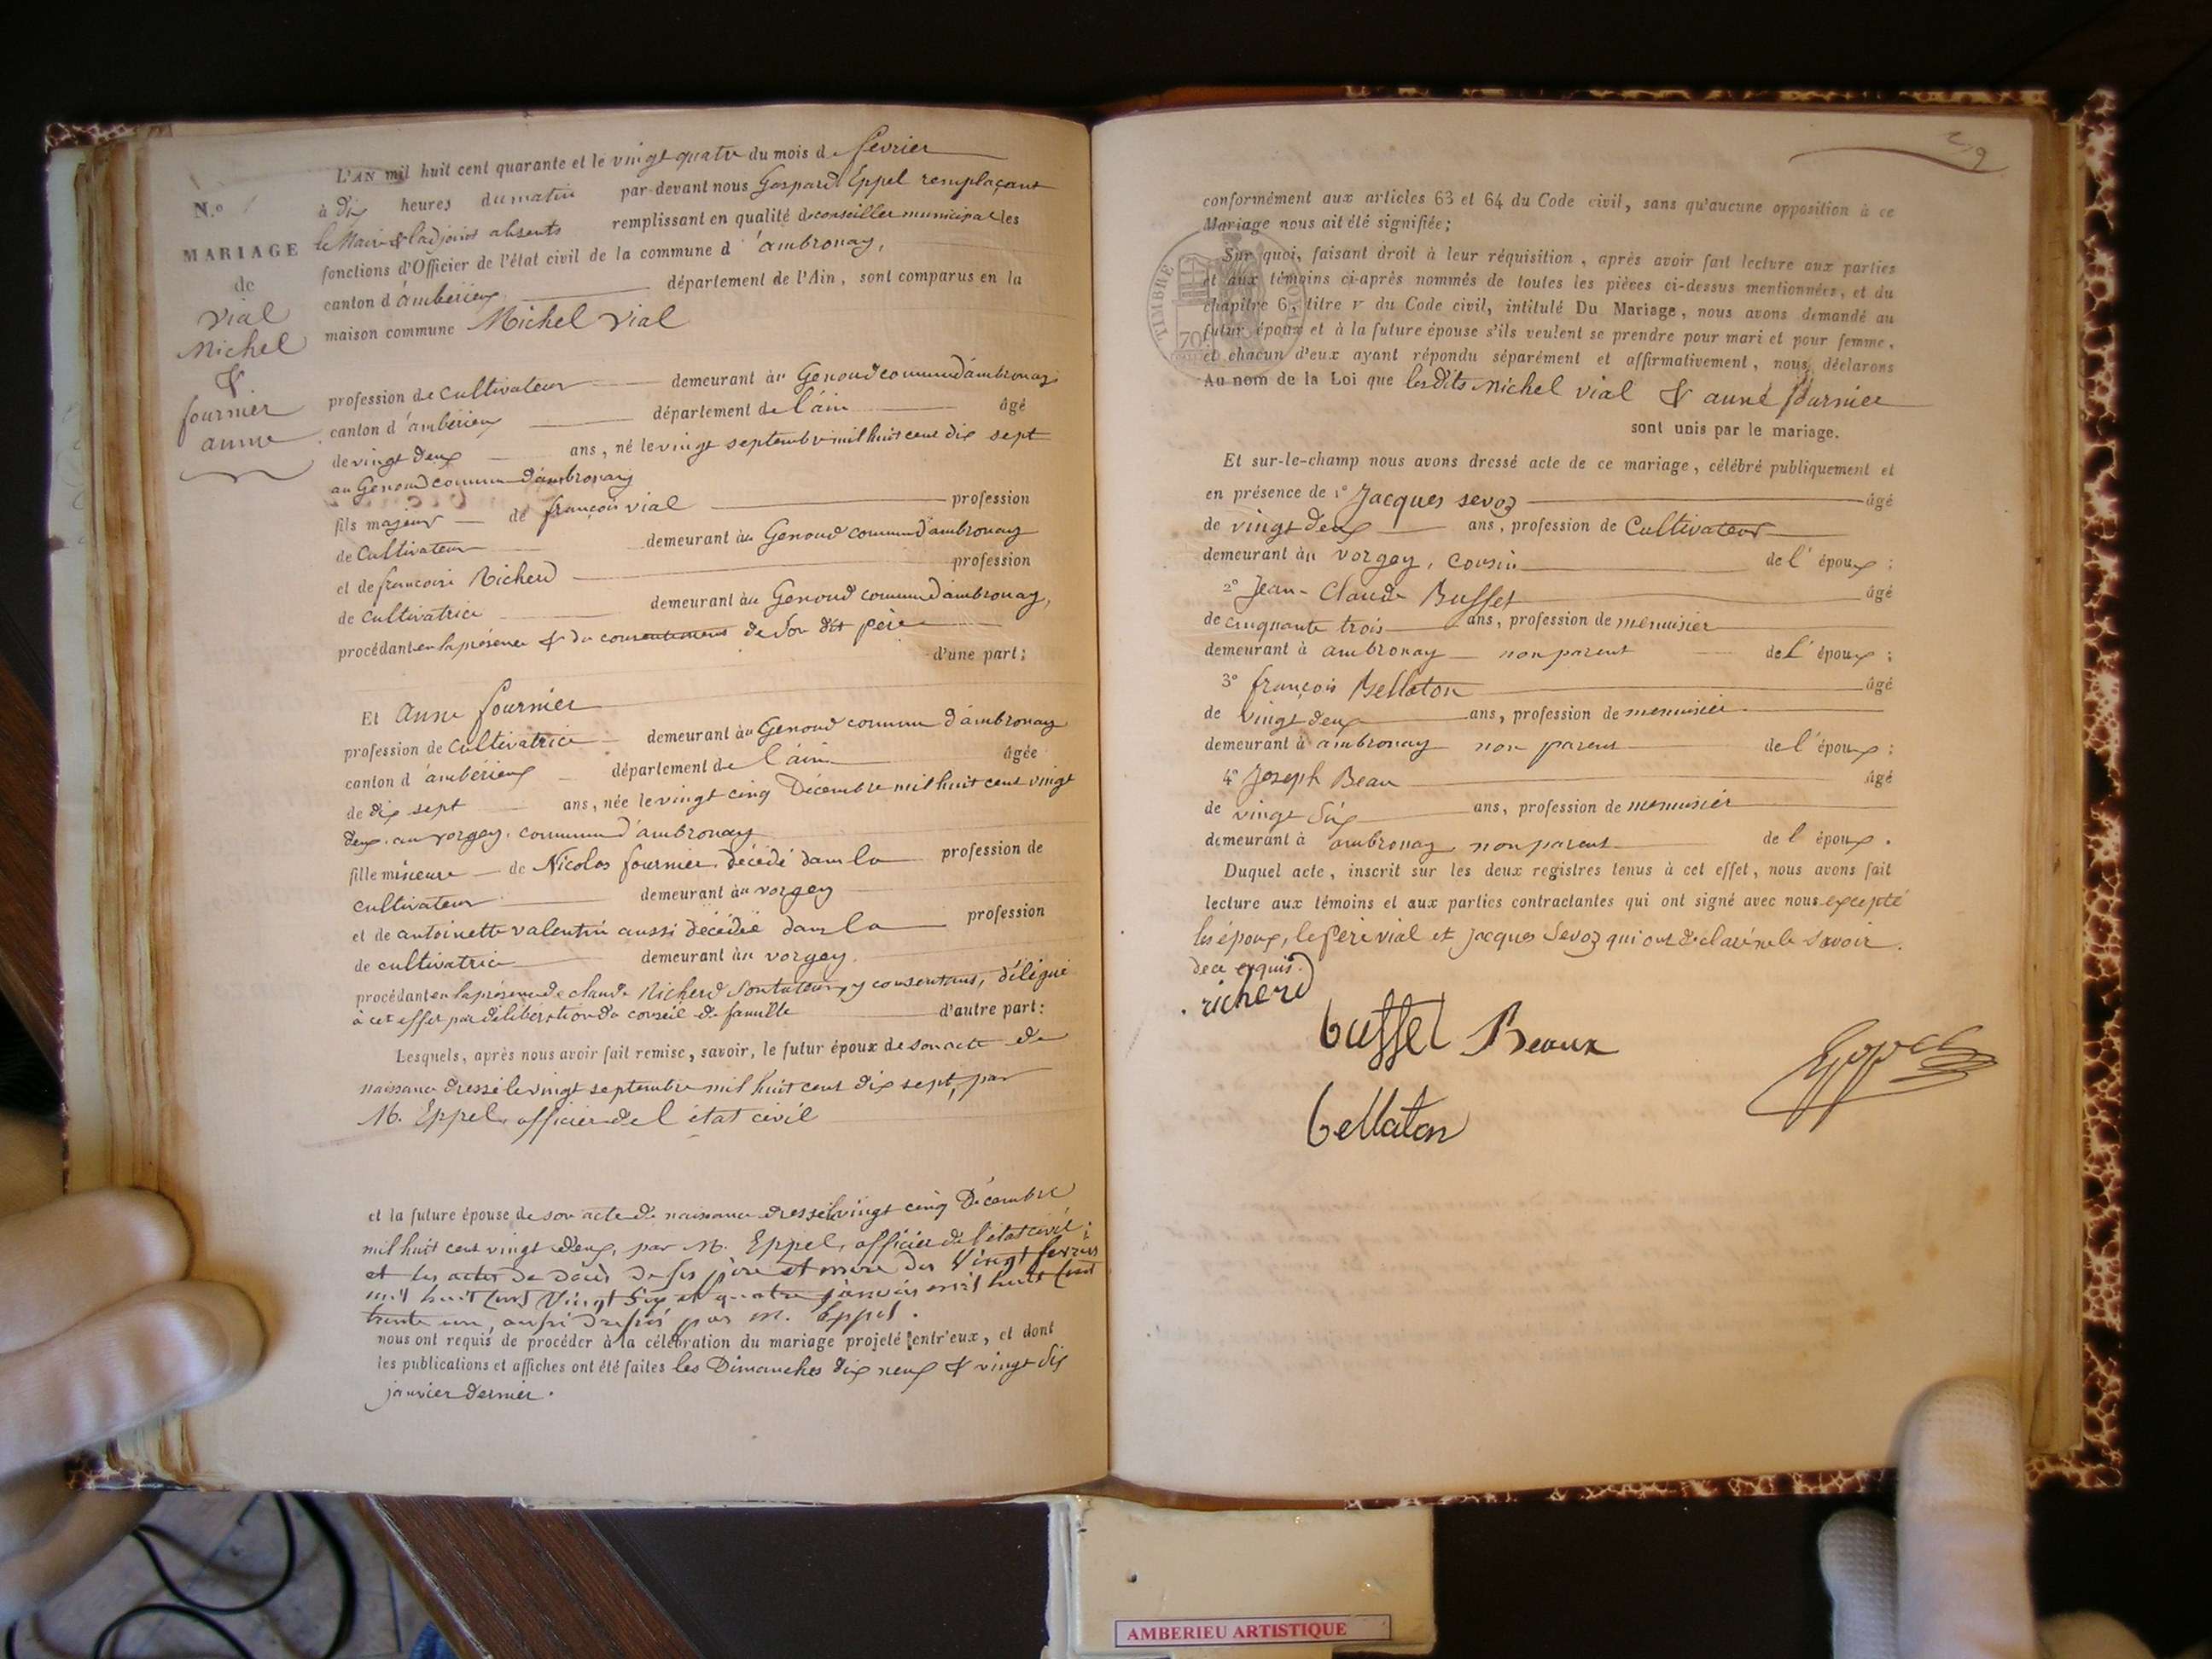 L'AN mil huit cent quarante et le vingt quatre du mois de février
à dix heures du matin par-devant nous Gaspard Eppel remplaçant
le Maire & l'adjoint absents remplissant en qualité de conseiller municipal les
fonctions d'Officier de l'état civil de la commune d'ambronay,
canton d'ambérieux département de l'Ain, sont comparus en la
maison commune Michel Vial
N.º 1
MARIAGE
de
Vial
Michel
&
fournier
anne
profession de cultivateur demeurant au Genoud commune d'ambronay
canton d'ambérieux département de l'ain âgé
de vingt deux ans, né le vingt septembre mil huit cent dix sept
au Genoud commune d'ambronay
fils majeur de françois vial profession
de Cultivateur demeurant au Genoud commune d'ambronay
et de francoise Richerd profession
de cultivatrice demeurant au Genoud commune d'ambronay,
procédant en la présence & du consentement de son dit père
d'une part;
Et anne fournier
profession de cultivatrice demeurant au Genoud commune d'ambronay
canton d'ambérieux département de l'ain âgée
de dix sept ans, née le vingt cinq Décembre mil huit cent vingt
deux, au vorgey, commune d'ambronay
fille mineure de Nicolas fournier, décédé dans la profession de
cultivateur demeurant au vorgey
et de antoinette valentin aussi décédée dans la profession
de cultivatrice demeurant au vorgey.
procédant en la présence de claude Richerd son tuteur, y consentans, délégué
à cet effet par délibération du conseil de famille d'autre part:
Lesquels, après nous avoir fait remise, savoir, le futur époux de son acte de
naissance dressé le vingt septembre mil huit cent dix sept, par
M. Eppel, officier de l'état civil
et la future épouse de son acte de naissance dressé le vingt cinq Décembre
mil huit cent vingt deux, par M. Eppel, officier de l'état civil;
et les actes de décès de ses père et mère des Vingt fevrier
mil huit cent Vingt Six et quatre janvier mil huit cent
trente un, aussi dressés par M. Eppel.
nous ont requis de procéder à la célébration du mariage projeté entr'eux, et dont
les publications et affiches ont été faites les Dimanches dix neuf & vingt six
janvier dernier.
conformément aux articles 63 et 64 du Code civil, sans qu'aucune opposition à ce
Mariage nous ait été signifiée;
TIMBRE ROYAL
70
Sur quoi, faisant droit à leur réquisition, après avoir fait lecture aux parties
et aux témoins ci-après nommés de toutes les pièces ci-dessus mentionnées, et du
chapitre 6, titre V du Code civil, intitulé Du Mariage, nous avons demandé au
futur époux et à la future épouse s'ils veulent se prendre pour mari et pour femme,
et chacun d'eux ayant répondu séparément et affirmativement, nous déclarons
Au nom de la Loi que lesdits Michel vial & anne fournier
sont unis par le mariage.
Et sur-le-champ nous avons dressé acte de ce mariage, célébré publiquement et
en présence de 1º Jacques sevoz âgé
de vingt deux ans, profession de Cultivateur
demeurant au vorgey, cousin de l'époux;
2º Jean-Claude Buffet âgé
de cinquante trois ans, profession de menuisier
demeurant à ambronay non parent de l'époux;
3º françois Bellaton âgé
de vingt deux ans, profession de menuisier
demeurant à ambronay non parent de l'époux;
4º Joseph Beau âgé
de vingt Six ans, profession de menuisier
demeurant à ambronay non parent de l'époux.
Duquel acte, inscrit sur les deux registres tenus à cet effet, nous avons fait
lecture aux témoins et aux parties contractantes qui ont signé avec nous excepté
les époux, le père vial et Jacques Sevoz qui ont déclaré ne le savoir.
de ce requis.
richerd
buffet Beaux
Eppel
bellaton
AMBERIEU ARTISTIQUE